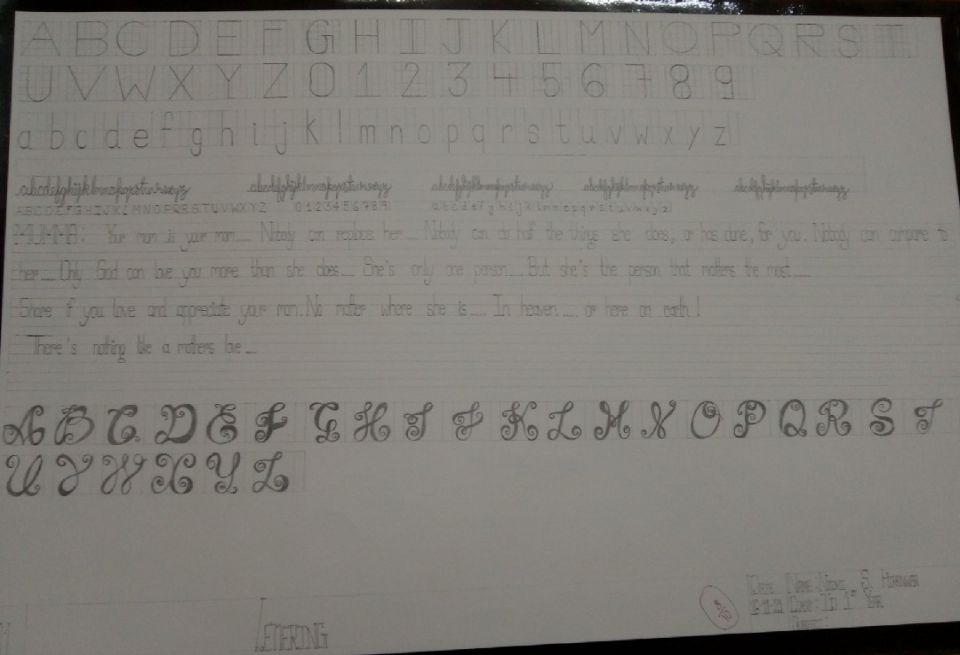 A B C D E F G H I J K L M N O P Q R S T
U V W X Y Z 0 1 2 3 4 5 6 7 8 9
a b c d e f g h i j k l m n o p q r s t u v w x y z
abcdefghijklmnopqrstuvwxyz abcdefghijklmnopqrstuvwxyz abcdefghijklmnopqrstuvwxyz abcdefghijklmnopqrstuvwxyz abcdefghijklmnopqrstuvwxyz
A B C D E F G H I J K L M N O P Q R S T U V W X Y Z 0 1 2 3 4 5 6 7 8 9 a b c d e f g h i j k l m n o p q r s t u v w x y z
MUMMA: Your mum is your mum.... Nobody can replace her.... Nobody can do half the things she does, or has done, for you. Nobody can compare to
her.... Only God can love you more than she does.... She's only one person.... But she's the person that matters the most....
Share if you love and appreciate your mum. No matter where she is.... In heaven...., or here on earth!
There's nothing like a mothers love....
A B C D E F G H I J K L M N O P Q R S T
U V W X Y Z
LETTERING
Date Name:
1st Year